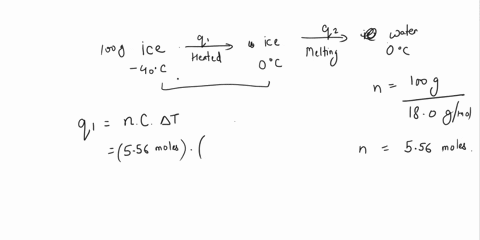 100g ice q₁ Heated ice q₂ Melting water
-40°C 0°C 0°C
n = 100g / 18.0 g/mol
q₁ = n.C.ΔT
= (5.56 moles) . (
n = 5.56 moles.